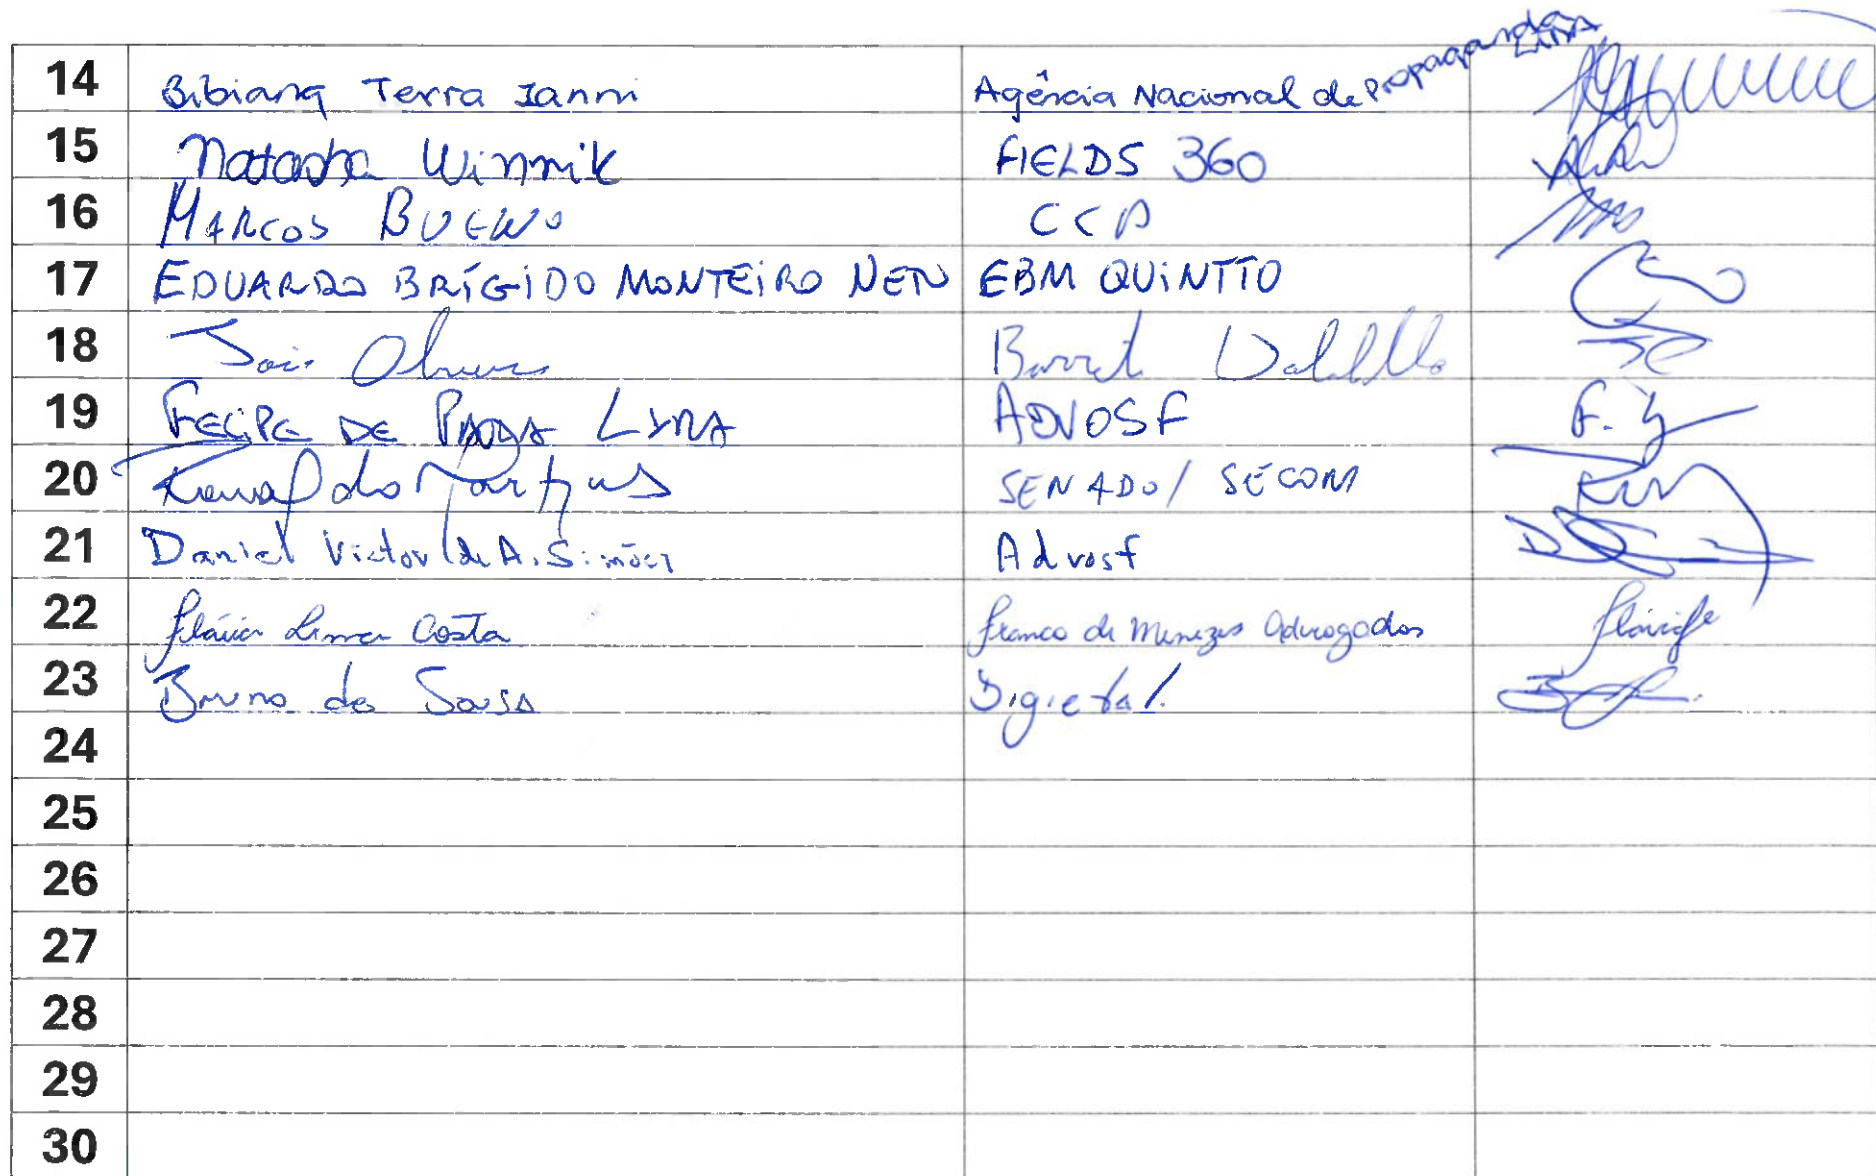 14 Bibiana Terra Ianni Agência Nacional de Propaganda LTDA
15 Natasha Winnik FIELDS 360
16 MARCOS BUENO CCP
17 EDUARDO BRÍGIDO MONTEIRO NETO EBM QUINTTO
18
19 FELIPE DE LIMA ADVOSF F.
20 SENADO / SECOM
21 Daniel Victor de A. Simões Advosf
22 Flávia Lima Costa Franco de Menezes Advogados
23 Bruno de Sousa Digital.
24
25
26
27
28
29
30